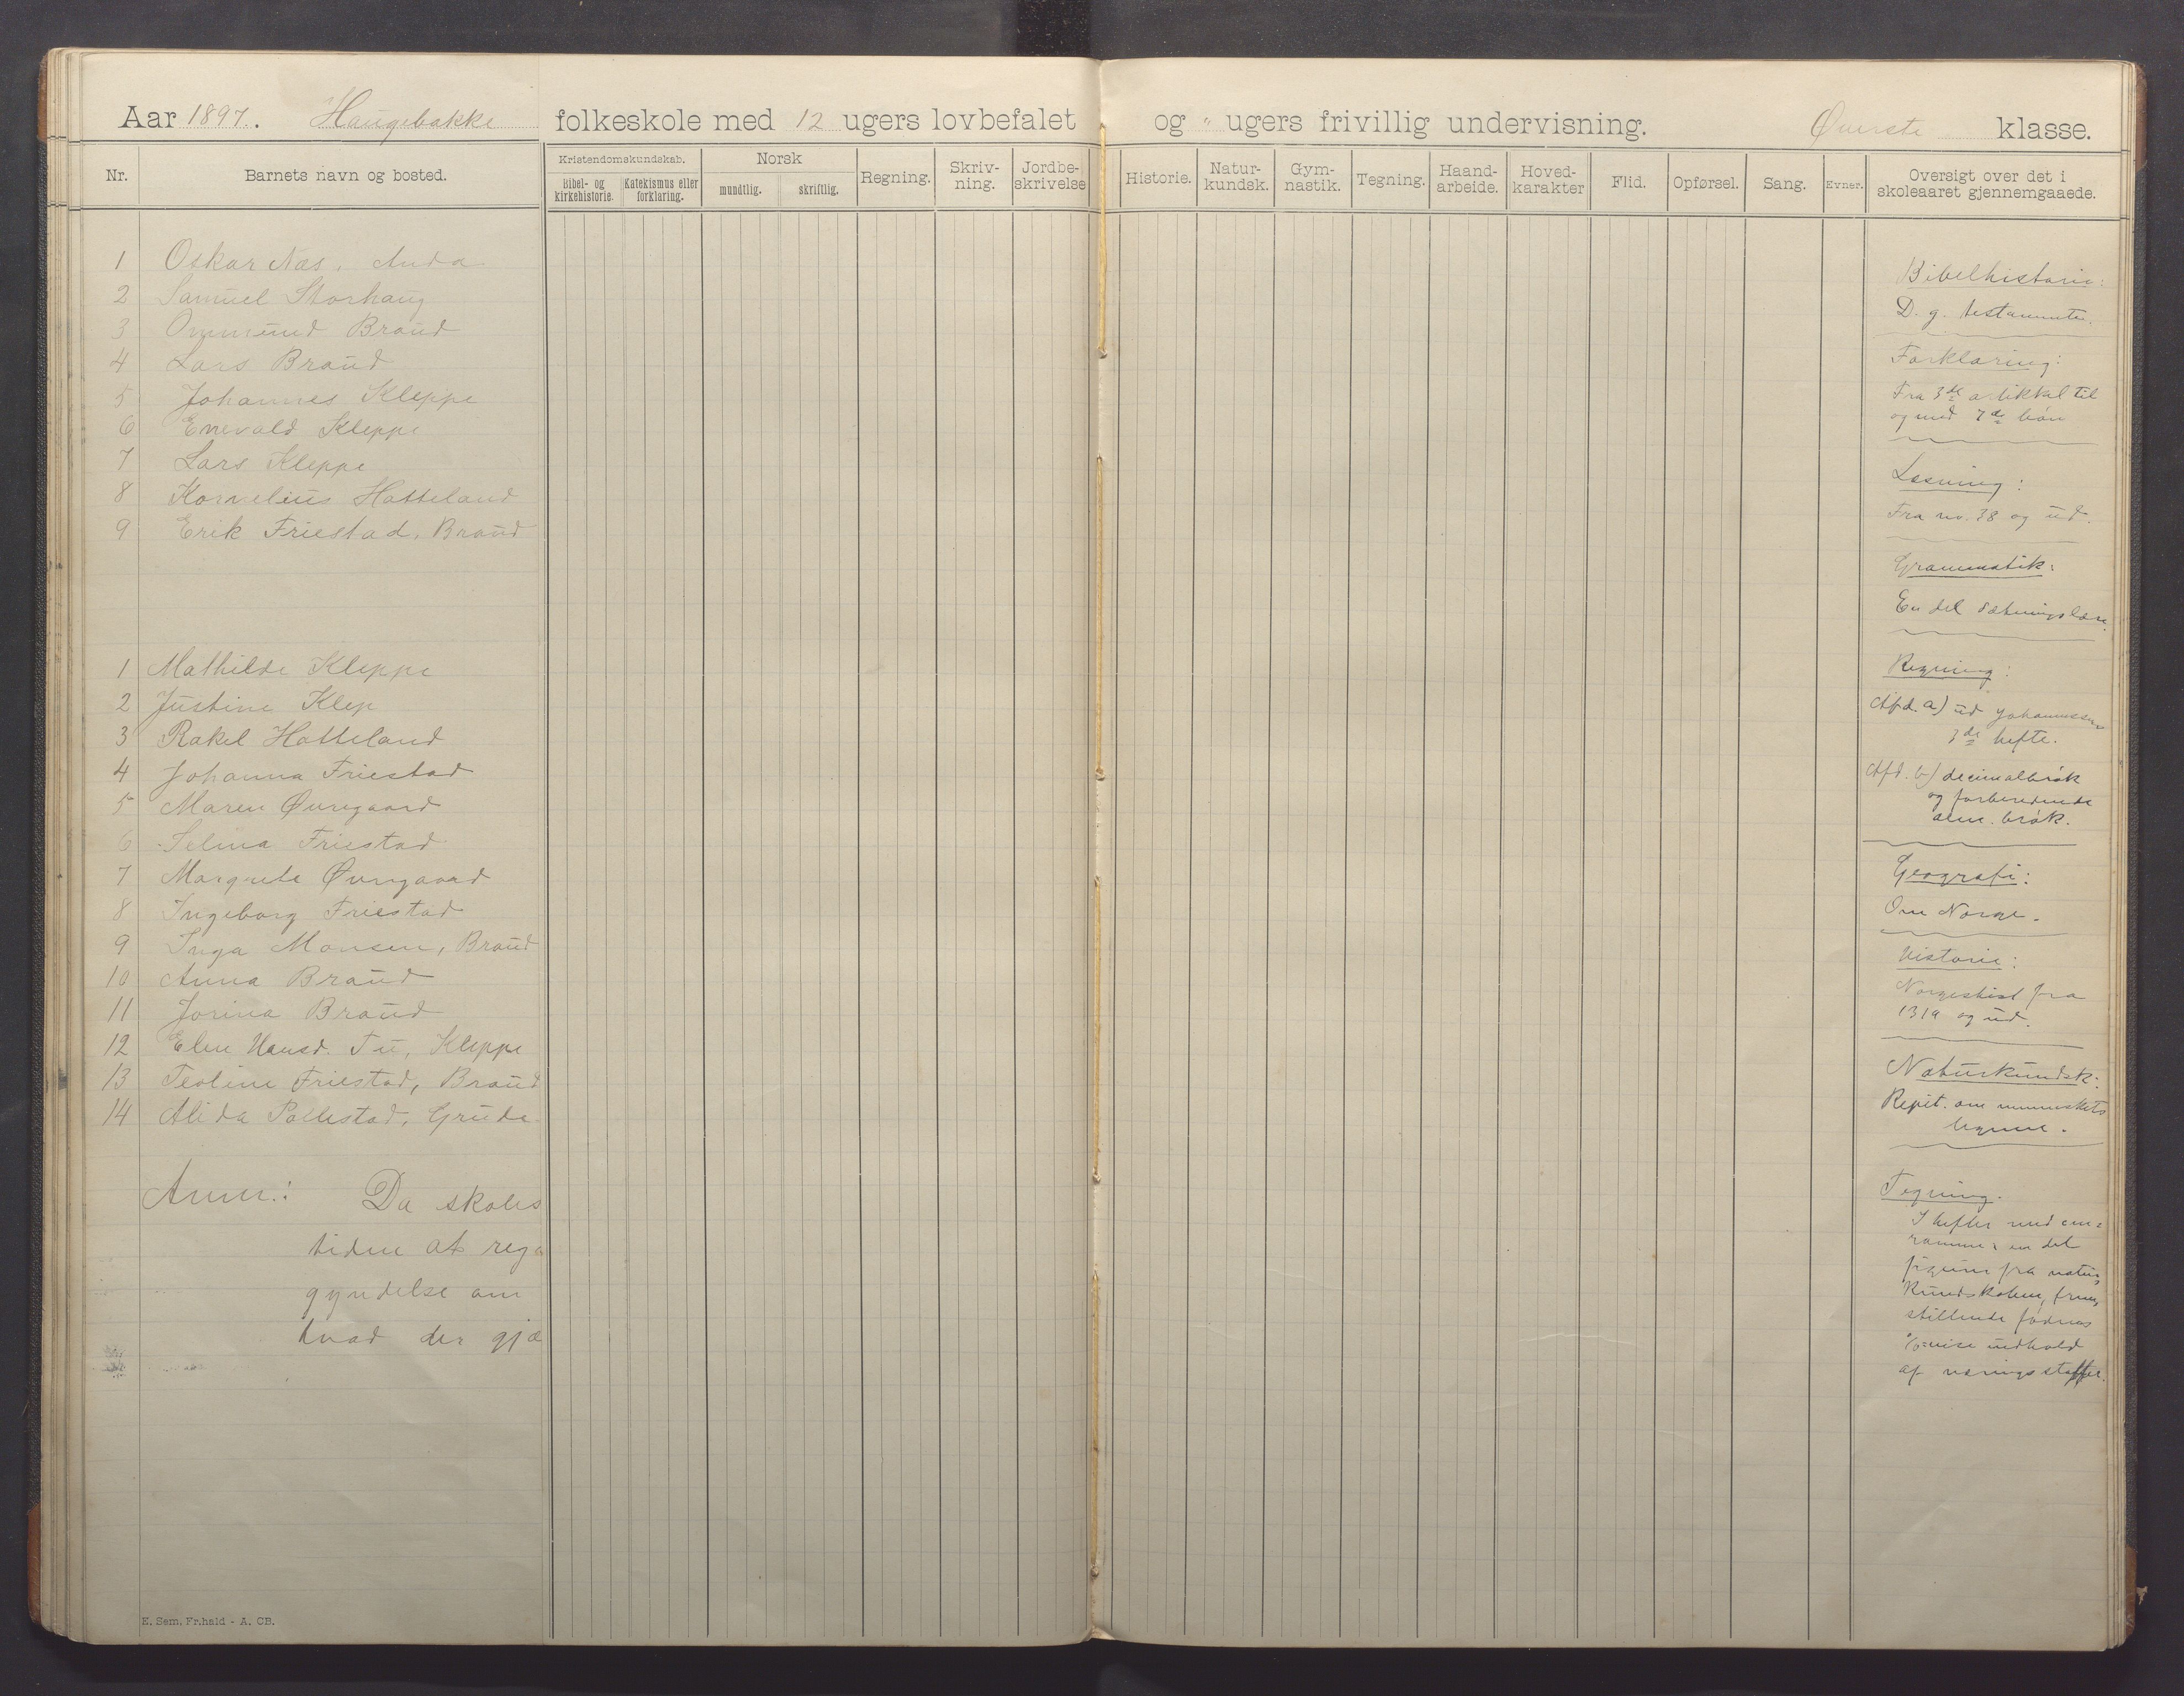 Aar 1897. Haugebakke folkeskole med 12 ugers lovbefalet og " ugers frivillig undervisning. Øverste klasse.
Nr.
Barnets navn og bosted.
Kristendomskundskab.
Bibel- og kirkehistorie.
Katekismus eller forklaring.
Norsk
mundtlig.
skriftlig.
Regning.
Skriv-
ning.
Jordbe-
skrivelse
Historie.
Natur-
kundsk.
Gym-
nastik.
Tegning.
Haand-
arbeide.
Hoved-
karakter
Flid.
Opførsel.
Sang.
Evner.
Oversigt over det i
skoleaaret gjennemgaaede.
1 Oskar Næs, Anda
2 Samuel Storhaug
3 Ommund Braud
4 Lars Braud
5 Johannes Kleppe
6 Enevald Kleppe
7 Lars Kleppe
8 Kornelius Hatteland
9 Erik Friestad, Braud
1 Mathilde Kleppe
2 Justine Klep
3 Rakel Hatteland
4 Johanna Friestad
5 Maren Øvregaard
6 Selina Friestad
7 Margrete Øvregaard
8 Ingeborg Friestad
9 Inga Monsen, Braud
10 Anna Braud
11 Jorina Braud
12 Elen Hansd. Tu, Kleppe
13 Teoline Friestad, Braud
14 Alida Pollestad, Grude.
Anm.: Da skoles
tiden at reg
gyndelse om
hvad der gjæ
E. Sem, Fr.hald - A. CB.
Bibelhistorie:
D. g. testamente.
Forklaring:
Fra 3de artikkel til
og med 7de bøn
Læsning:
Fra no. 38 og ud.
Grammatik:
En del sætningslære.
Regning:
Afd. a) ud Johannessens
3de hefte.
Afd. b) decimalbrøk
og forberedende
alm. brøk.
Geografi:
Om Norge.
Historie:
Norgeshist fra
1319 og ud.
Naturkundsk:
Repit. om menneskets
legeme.
Tegning.
I hefter med
en del
figurer fra natur,
kundskaben, frem,
stillende fødens
%-vise indhold
af næringsstoffer.